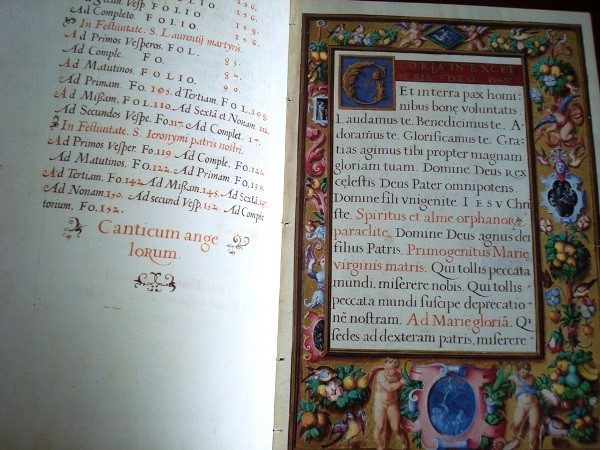 Secun. Vesp. FOLIO. 156.
Ad Completo FOLIO. 156.
In Festiuitate. S. Laurentij martyris.
Ad Primos Vesperos. FOL. 83.
Ad Comple. FO.
Ad Matutinos. FOLIO. 90.
Ad Primam. FO. 105. ad Tertiam. FOL. 108.
Ad Missam. FOL. 110. Ad Sextā et Nonam. 112.
Ad Secundos Vespe. FO. 117. Ad Complet. 17.
In Festiuitate S. Ieronymi patris nostri.
Ad Primos Vesper. FO. 119. Ad Comple. FO. 122.
Ad Matutinos. FO. 122. Ad Primam. FO. 119.
Ad Tertiam. FO. 142. Ad Missam. 145. Ad Sextā.
Ad Nonam. 150. Ad secund Vesp. 152. Ad Comple
torium. FO. 152.
Canticum ange
lorum.
GLORIA IN EXCEL
SIS DEO.
Et in terra pax homi⸗
nibus bonę voluntatus
Laudamus te. Benedicimus te. A
doramus te. Glorificamus te. Gra⸗
tias agimus tibi propter magnam
gloriam tuam. Domine Deus REX
cęlestis Deus Pater omnipotens.
Domine fili vnigenite IESV Chri
ste. Spiritus et alme orphanorū
paraclite, Domine Deus agnus dei
filius Patris. Primogenitus Marie
virginis matris. Qui tollis peccata
mundi, miserere nobis. Qui tollis
peccata mundi suscipe deprecatio⸗
nē nostram. Ad Marie gloriā. Q
sedes ad dexteram patris, miserere